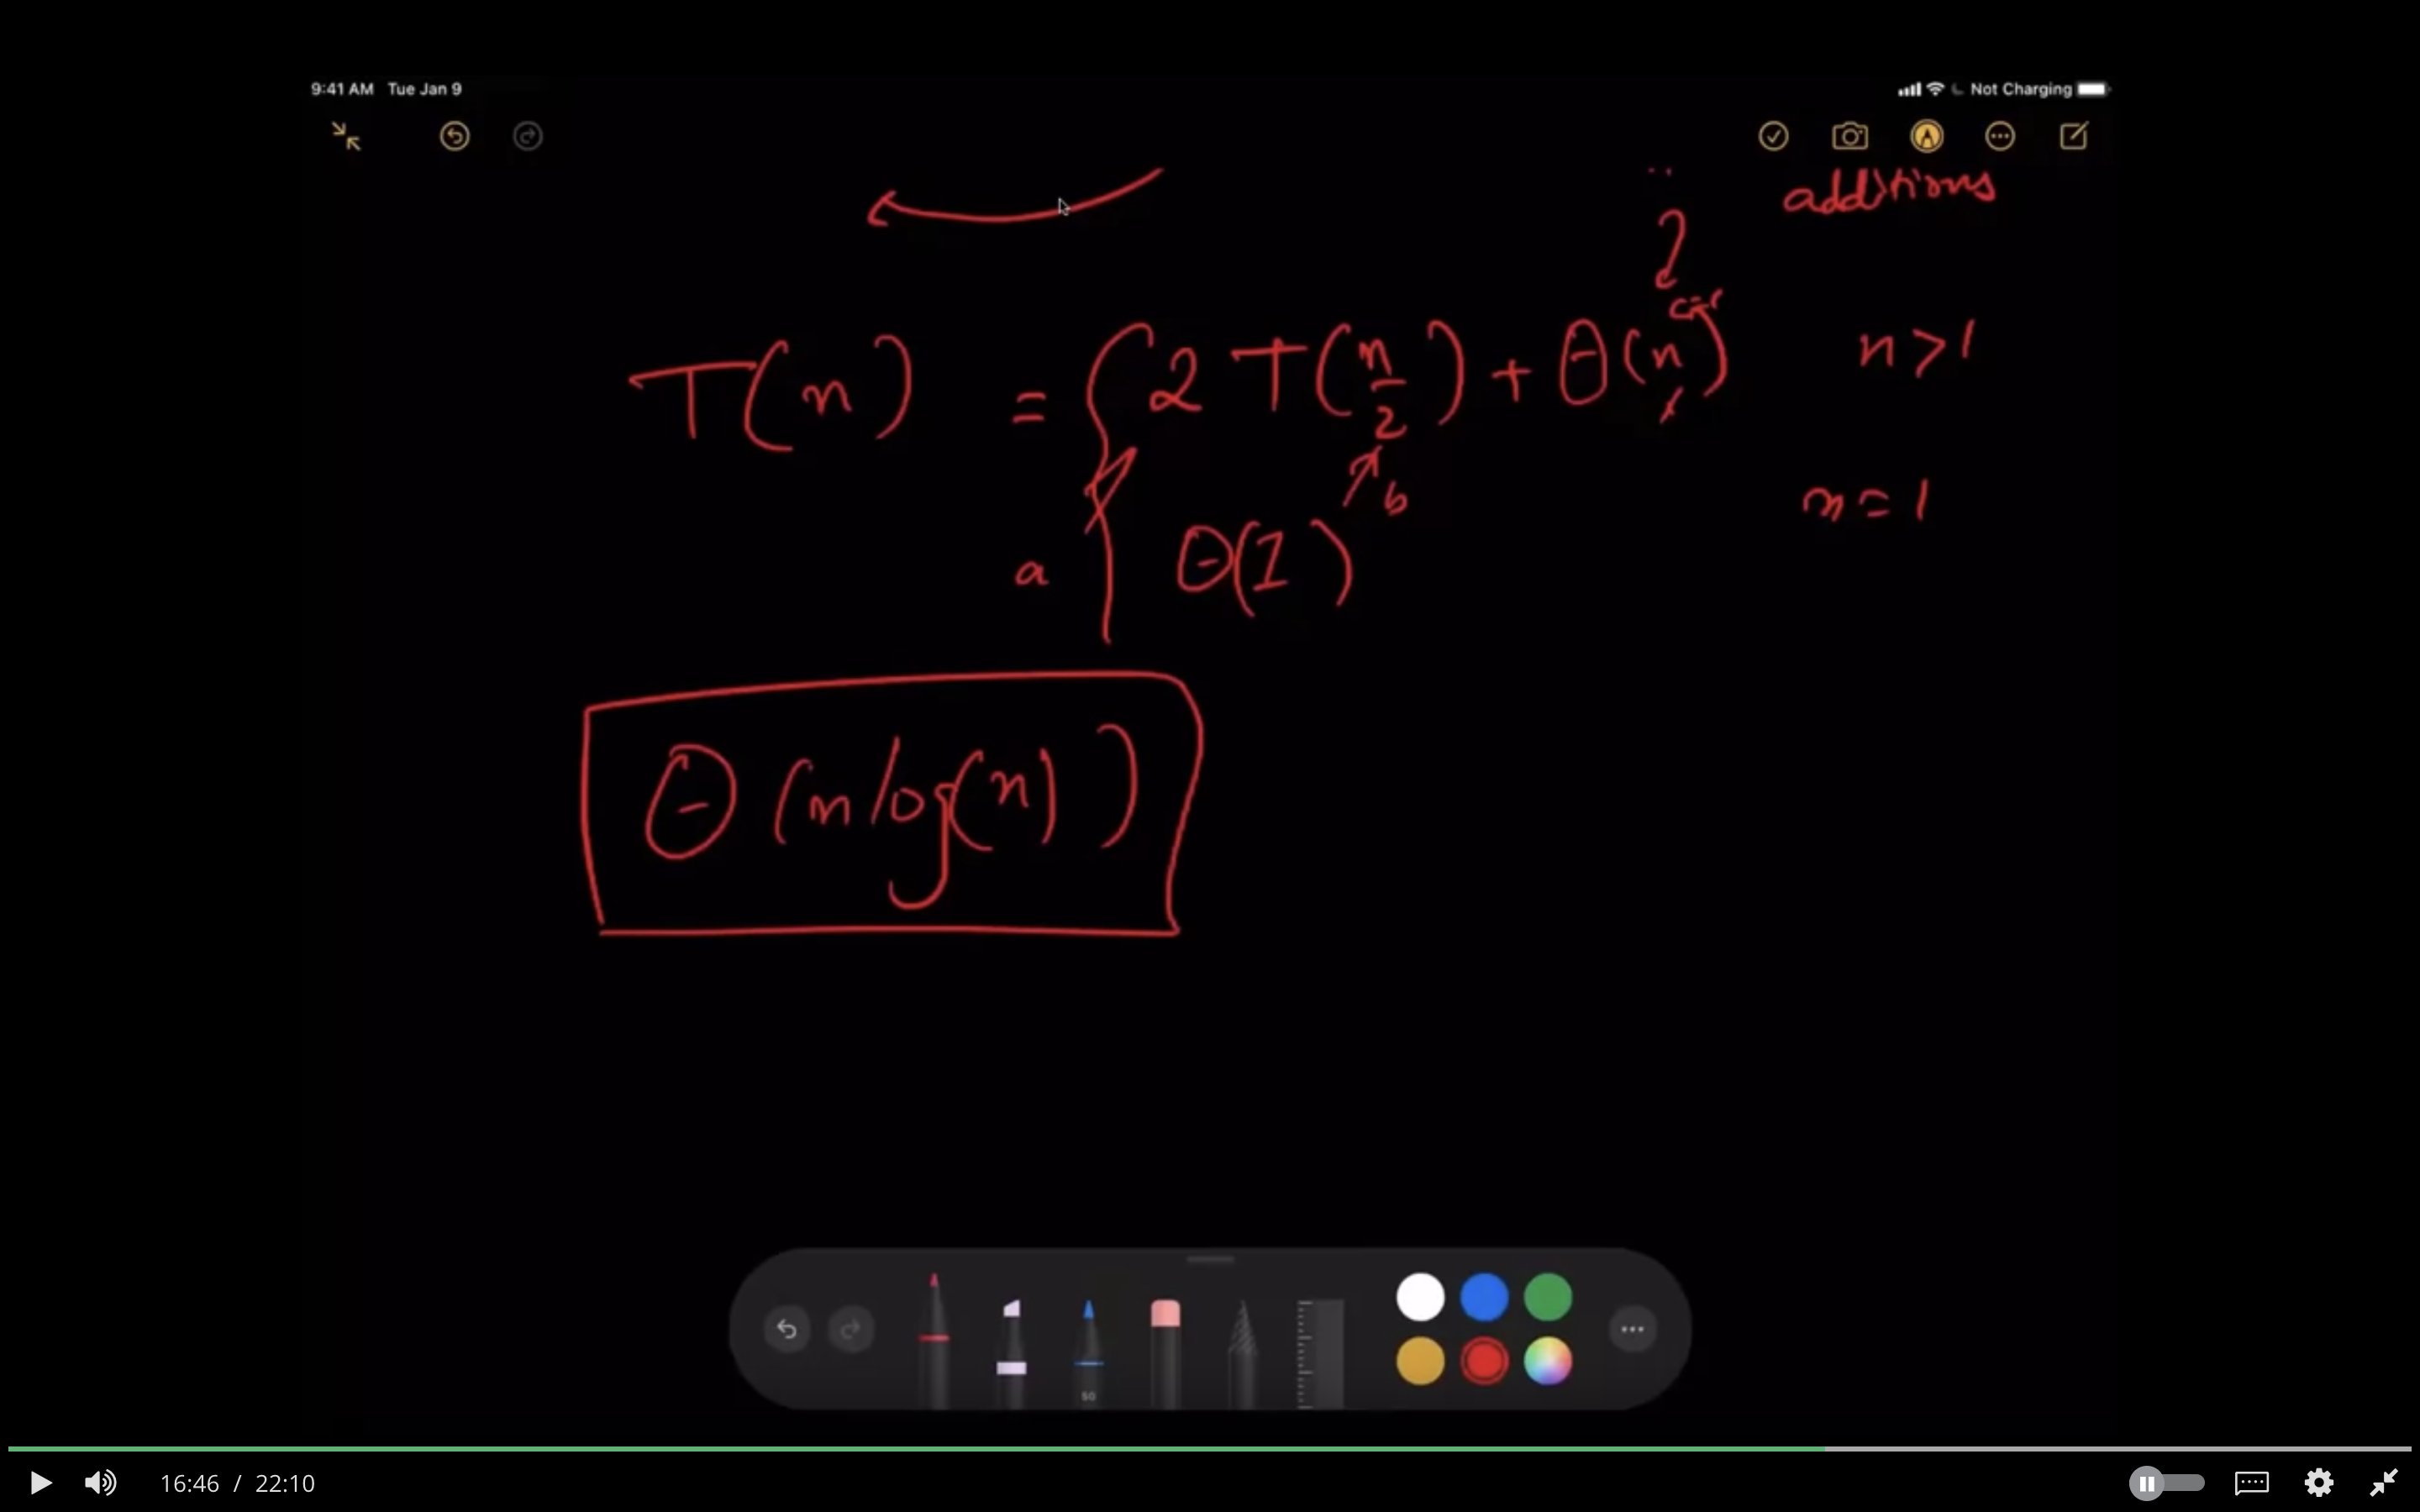 9:41 AM Tue Jan 9
Not Charging
additions
c=1
T(n) = { 2 T(n/2) + Θ(n) n>1
b
n=1
a Θ(1)
Θ(n log(n))
50
16:46 / 22:10